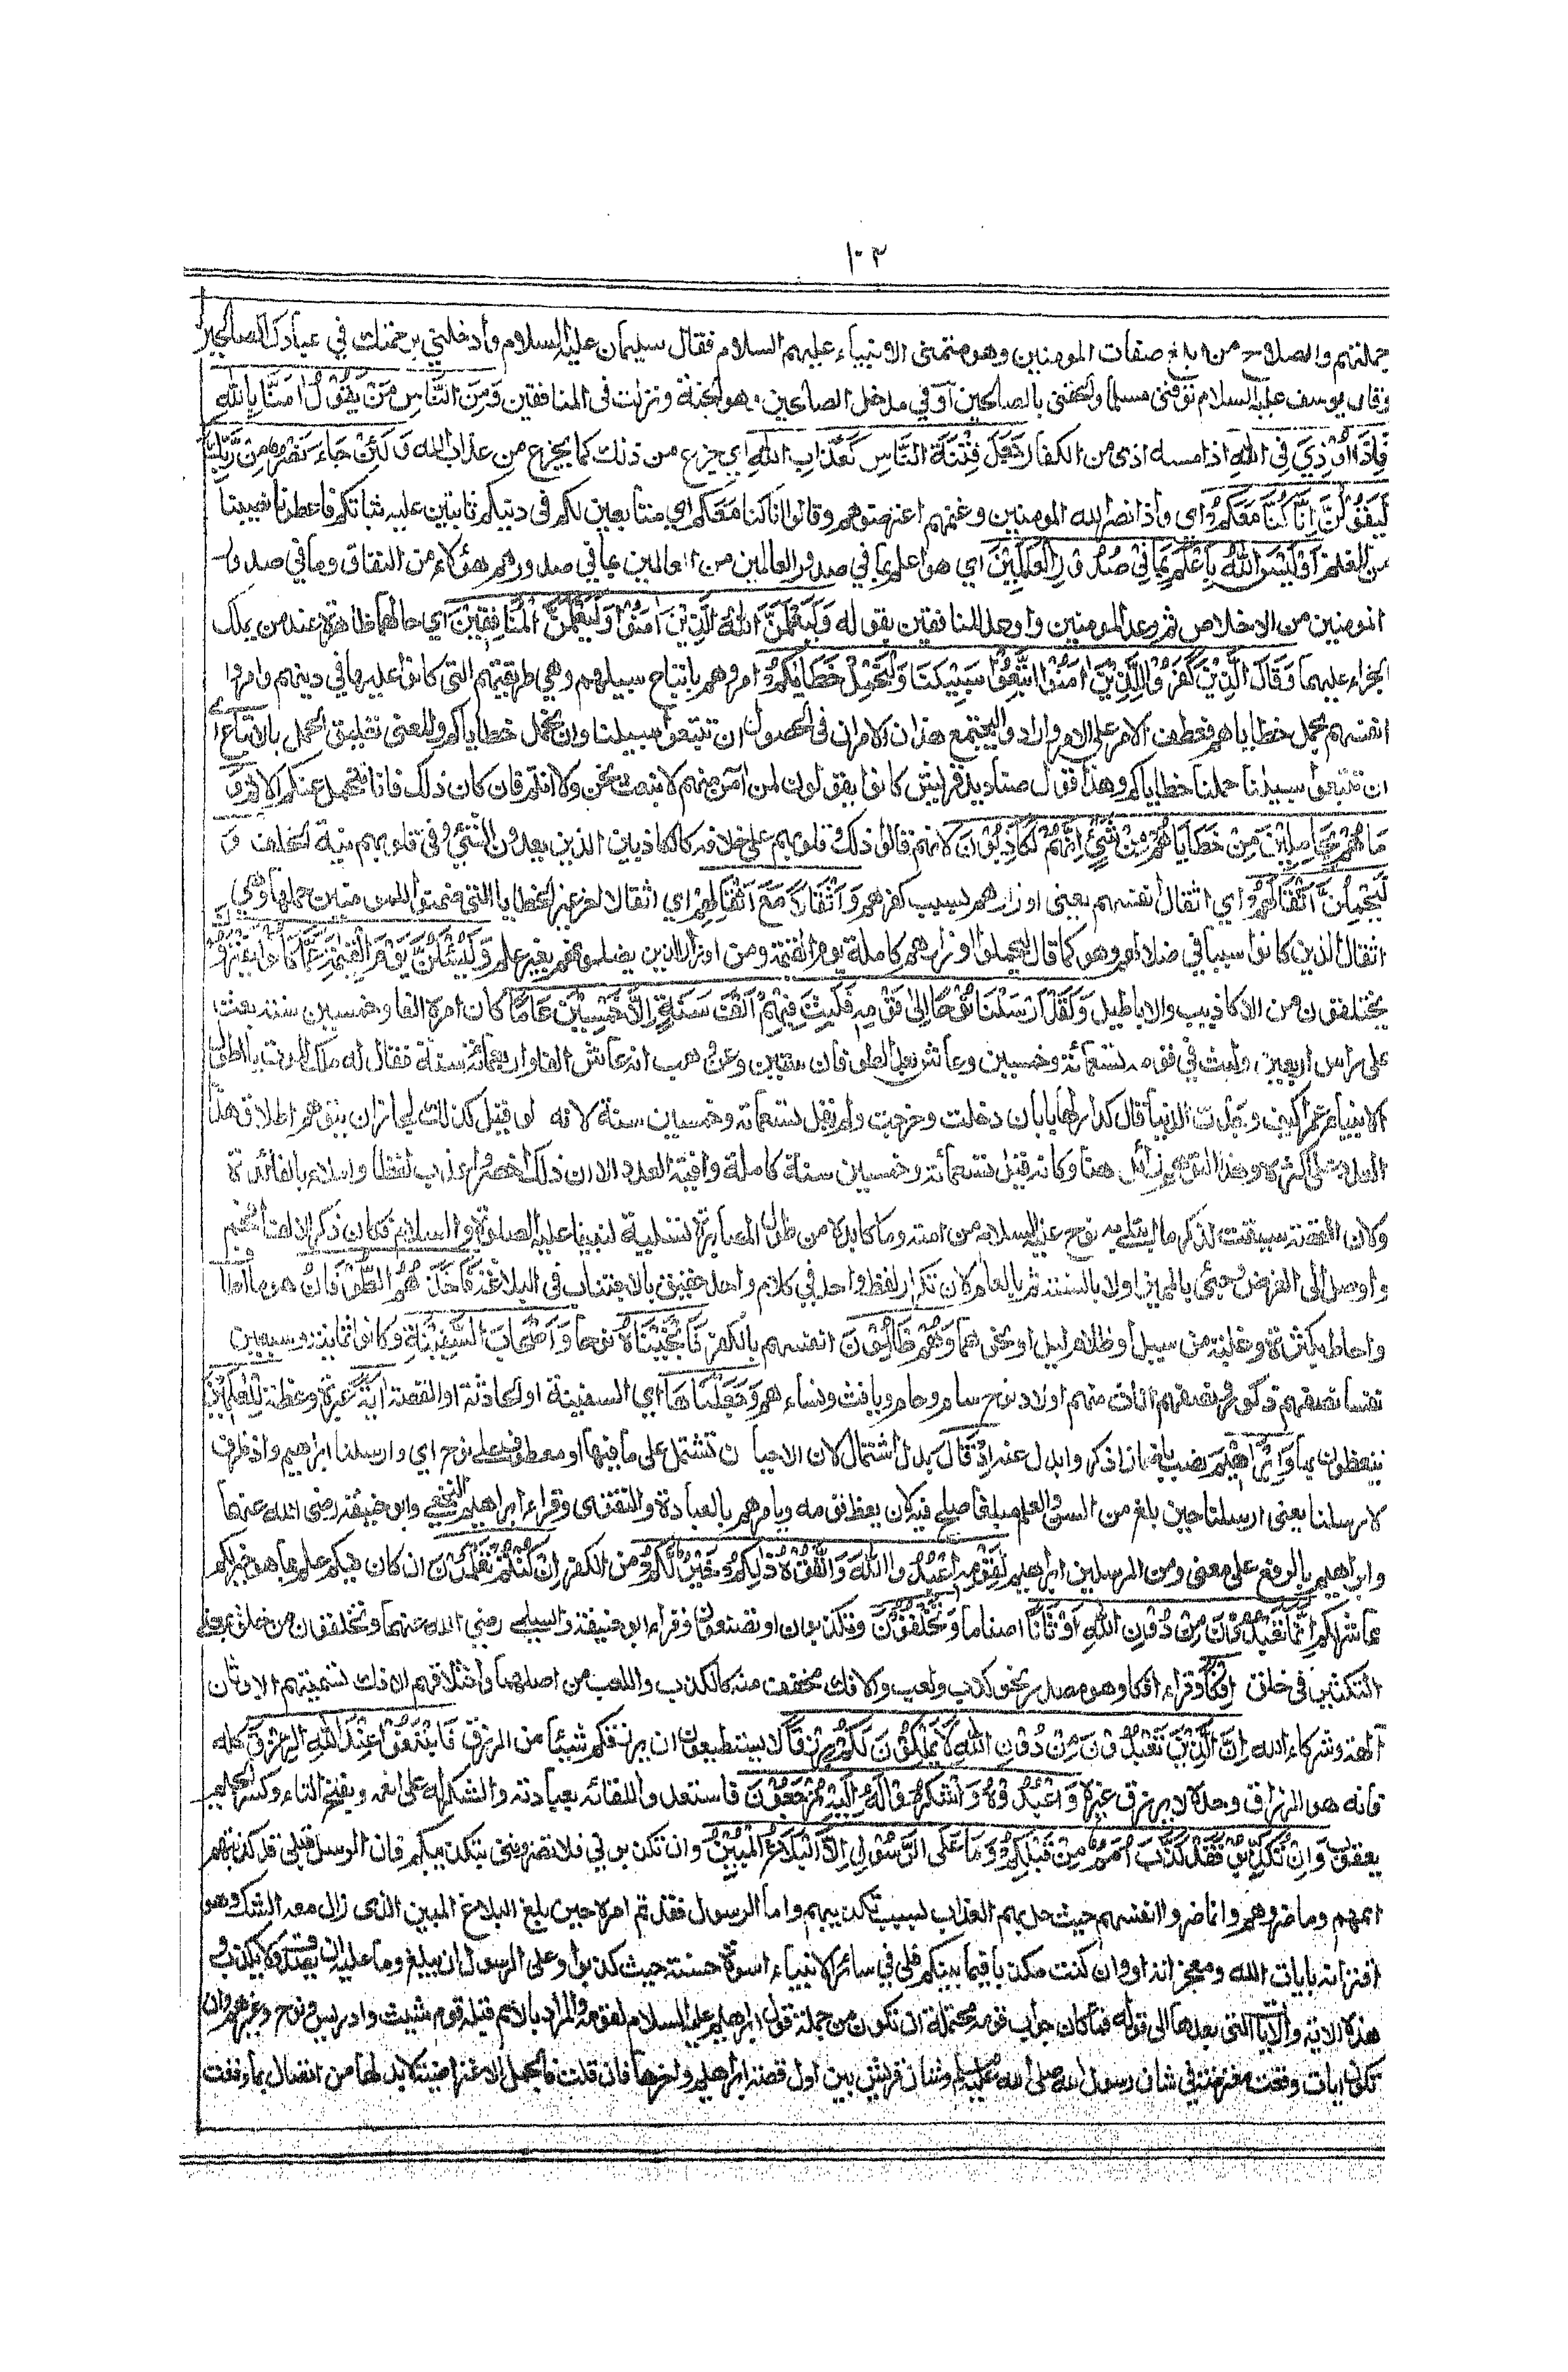 ١٠٢
جملتهم والصلاح من ابلغ صفات المومنين وهو متمنى الانبياء عليهم السلام فقال سليمان عليه السلام وأدخلني برحمتك في عبادك الصالحين
وقال يوسف عليه السلام توفنى مسلما والحقنى بالصالحين أو في مدخل الصالحين وهو الجنة ونزلت فى المنافقين وَمِنَ النَّاسِ مَنْ يَقُوْلُ اٰمَنَّا بِاللهِ
فَاِذَا اُوْذِيَ فِى اللهِ اذا مسه اذى من الكفار جَعَلَ فِتْنَةَ النَّاسِ كَعَذَابِ اللهِ اي جزع من ذلك كما يجزع من عذاب الله وَلَئِنْ جَاءَ نَصْرٌ مِّنْ رَّبِّكَ
لَيَقُوْلُنَّ اِنَّا كُنَّا مَعَكُمْ اى واذا نصر الله المومنين وغنمهم اعترضوهم وقالوا انا كنا معكم اي متابعين لكم فى دينكم ثابتين عليه ثباتكم فاعطونا نصيبنا
من المغنم اَوَلَيْسَ اللهُ بِاَعْلَمَ بِمَا فِيْ صُدُوْرِ الْعٰلَمِيْنَ اي هو اعلم بما في صدور العالمين من العالمين بما في صدورهم هؤلاء من النفاق وما في صدور
المومنين من الاخلاص ثم وعد المومنين واوعد المنافقين بقوله وَلَيَعْلَمَنَّ اللهُ الَّذِيْنَ اٰمَنُوْا وَلَيَعْلَمَنَّ الْمُنَافِقِيْنَ اي حالهما ظاهرة عند من يملك
الجزاء عليهما وَقَالَ الَّذِيْنَ كَفَرُوْا لِلَّذِيْنَ اٰمَنُوْا اتَّبِعُوْا سَبِيْلَنَا وَلْنَحْمِلْ خَطَايٰكُمْ امروهم باتباع سبيلهم وهي طريقتهم التى كانوا عليها في دينهم وامروا
انفسهم بحمل خطاياهم فعطف الامر على الامر وارادوا ليجتمع هذان الامران فى الحصول ان تتبعوا سبيلنا وان نحمل خطاياكم والمعنى تعليق الحمل بالاتباع أي
ان تتبعوا سبيلنا حملنا خطاياكم وهذا قول صناديد قريش كانوا يقولون لمن آمن منهم لا نبعث نحن ولا انتم فان كان ذلك فانا نتحمل عنكم الاثم وَ
مَا هُمْ بِحَامِلِيْنَ مِنْ خَطَايَاهُمْ مِّنْ شَيْءٍ اِنَّهُمْ لَكَاذِبُوْنَ لانهم قالوا ذلك وقلوبهم على خلافه كالكاذبين الذين يعدون الشيء وفى قلوبهم نية الخلف وَ
لَيَحْمِلُنَّ اَثْقَالَهُمْ اي اثقال انفسهم يعنى اوزارهم بسبب كفرهم وَاَثْقَالًا مَّعَ اَثْقَالِهِمْ اي اثقالا اخر غير الخطايا التى ضمنوا للمومنين حملها وهي
اثقال الذين كانوا سببا في ضلالهم وهو كما قال ليحملوا اوزارهم كاملة يوم القيمة ومن اوزار الذين يضلونهم بغير علم وَلَيُسْئَلُنَّ يَوْمَ الْقِيٰمَةِ عَمَّا كَانُوْا يَفْتَرُوْنَ
يختلقون من الاكاذيب والاباطيل وَلَقَدْ اَرْسَلْنَا نُوْحًا اِلٰى قَوْمِهٖ فَلَبِثَ فِيْهِمْ اَلْفَ سَنَةٍ اِلَّا خَمْسِيْنَ عَامًا كان عمره الفا وخمسين سنة بعث
على راس اربعين ولبث في قومه تسعمائة وخمسين وعاش بعد الطوفان ستين وعن وهب انه عاش الفا واربعمائة سنة فقال له ملك الموت يا اطول
الانبياء عمرا كيف وجدت الدنيا قال كدار لها بابان دخلت وخرجت ولم يقل تسعمائة وخمسين سنة لانه لو قيل كذلك لجاز ان يتوهم اطلاق هذا
العدد على اكثره وهذا التوهم زائل هنا وكانه قيل تسعمائة وخمسين سنة كاملة وافية العدد الا ان ذلك اخصر واعذب لفظا واملاء بالفائدة
ولان القصة سيقت لذكر ما ابتلى به نوح عليه السلام من امته وما كابده من طول المصابرة تسلية لنبينا عليه الصلوة والسلام فكان ذكر الالف افخم
واوصل الى الغرض وجيئ بالمميز اولا بالسنة ثم بالعام لان تكرار لفظ واحد في كلام واحد حقيق بالاجتناب فى البلاغة فَاَخَذَهُمُ الطُّوْفَانُ هو ما اطاف
واحاط بكثرة وغلبة من سيل او ظلام ليل او نحوهما وَهُمْ ظَالِمُوْنَ انفسهم بالكفر فَاَنْجَيْنَاهُ نوحا وَاَصْحَابَ السَّفِيْنَةِ وكانوا ثمانية وسبعين
نفسا نصفهم ذكور ونصفهم اناث منهم اولاد نوح سام وحام ويافث ونساءهم وَجَعَلْنَاهَا اي السفينة او الحادثة او القصة اٰيَةً عبرة وعظة لِلْعٰلَمِيْنَ
يتعظون بها وَاِبْرَاهِيْمَ نصب باضمار اذكر وابدل عنه اِذْ قَالَ بدل اشتمال لان الاحيان تشتمل على ما فيها او معطوف على نوح اي وارسلنا ابراهيم واذ ظرف
لارسلنا يعنى ارسلنا حين بلغ من السن والعلم مبلغا صلح فيه لان يعظ قومه ويامرهم بالعبادة والتقوى وقراء ابراهيم النخعي وابو حنيفة رضى الله عنهما
وابراهيم بالرفع على معنى ومن المرسلين ابراهيم لِقَوْمِهِ اعْبُدُوا اللهَ وَاتَّقُوْهُ ذٰلِكُمْ خَيْرٌ لَّكُمْ من الكفر اِنْ كُنْتُمْ تَعْلَمُوْنَ ان كان فيكم علم بما هو خير لكم
مما شر لكم اِنَّمَا تَعْبُدُوْنَ مِنْ دُوْنِ اللهِ اَوْثَانًا اصناما وَتَخْلُقُوْنَ وتكذبون او تصنعون وقراء ابو حنيفة والسلمي رضي الله عنهما وتخلقون من خلق بمعنى
التكثير فى خلق اِفْكًا وقراء افكا وهو مصدر نحو كذب ولعب والافك مخفف منه كالكذب واللعب من اصلهما واختلاقهم الافك تسميتهم الاوثان
آلهة وشركاء لله اِنَّ الَّذِيْنَ تَعْبُدُوْنَ مِنْ دُوْنِ اللهِ لَا يَمْلِكُوْنَ لَكُمْ رِزْقًا لا يستطيعون ان يرزقوكم شيئا من الرزق فَابْتَغُوْا عِنْدَ اللهِ الرِّزْقَ كله
فانه هو الرزاق وحده لا يرزق غيره وَاعْبُدُوْهُ وَاشْكُرُوْا لَهُ اِلَيْهِ تُرْجَعُوْنَ فاستعدوا للقائه بعبادته والشكر له على انعمه وبفتح التاء وكسر الجيم
يعقوب وَاِنْ تُكَذِّبُوْا فَقَدْ كَذَّبَ اُمَمٌ مِّنْ قَبْلِكُمْ وَمَا عَلَى الرَّسُوْلِ اِلَّا الْبَلَاغُ الْمُبِيْنُ وان تكذبوني فلا تضروننى بتكذيبكم فان الرسل قبلى قد كذبتهم
اممهم وما ضروهم وانما ضروا انفسهم حيث حل بهم العذاب بسبب تكذيبهم واما الرسول فقد تم امره حين بلغ البلاغ المبين الذى زال معه الشك وهو
اقترانه بايات الله ومعجزاته او وان كنت مكذبا فيما بينكم فلى في سائر الانبياء اسوة حسنة حيث كذبوا وعلى الرسول ان يبلغ وما عليه ان يصدق ولا يكذب و
هذه الاية والآيات التى بعدها الى قوله فما كان جواب قومه محتملة ان تكون من جملة قول ابراهيم عليه السلام لقومه والمراد بالامم قبله قوم شيث وادريس ونوح وغيرهم وان
تكون ايات وقعت معترضة في شان رسول الله صلى الله عليه وسلم وشان قريش بين اول قصة ابراهيم واخرها فان قلت فالجمل الاعتراضية لا بد لها من اتصال بما وقعت